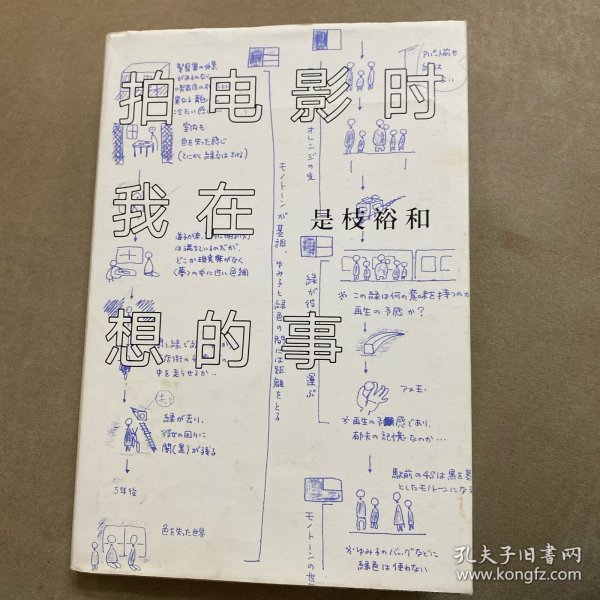 拍电影时
我在
想的事
是枝裕和
アパート前も
警察署の外景
オレンジの光
室内も
色を失った感じ
モノトーンが基調。ゆみ子と緑色の間には距離をとる
緑が
運ぶ
は満ちているのだが、
どこか現実感がなく
(夢)の中に近い色調
この緑は何の意味を持つのか
再生の予感か?
アメ玉
緑が去り、
彼女の回りに
闇(黒)が残る
再生の予感であり、
郁夫の記憶なのか…
5年後
色を失った世界
駅前の4Sは黒を基
としたモノトーンになる
モノトーンの世
ゆみ子のバッグなどに
緑色は使わない
孔夫子旧书网
www.kongfz.com